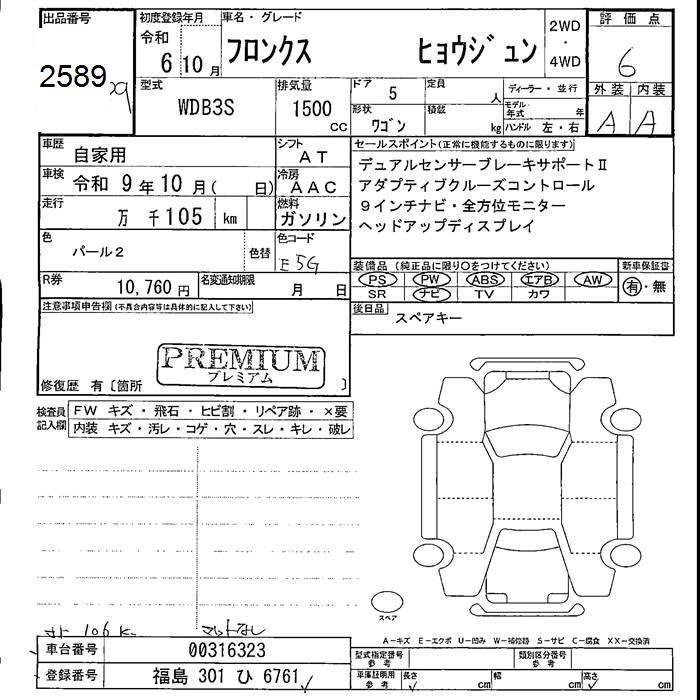 出品番号
2589
初度登録年月
令和
6 10 月
車名・グレード
フロンクス ヒョウジュン
2WD
・
4WD
評価点
6
外装 内装
A A
型式
WDB3S
排気量
1500
cc
ドア
5
定員
人
形状
ワゴン
積載
kg
ディーラー・並行
モデル年式 年
ハンドル 左・右
車歴
自家用
シフト
AT
車検
令和 9年10月( 日)
冷房
AAC
走行
万 千105 km
燃料
ガソリン
色
パール2
色替
色コード
E5G
R券
10,760 円
名変通知期限
月 日
セールスポイント(正常に機能するものに限ります)
デュアルセンサーブレーキサポートⅡ
アダプティブクルーズコントロール
9インチナビ・全方位モニター
ヘッドアップディスプレイ
装備品 (純正品に限り○をつけてください)
PS PW ABS エアB AW
SR ナビ TV カワ
新車保証書
有・無
後日品
スペアキー
注意事項申告欄(不具合内容等は具体的に記入して下さい)
PREMIUM
プレミアム
修復歴 有〔箇所 〕
検査員記入欄
FW キズ・飛石・ヒビ割・リペア跡・×要
内装 キズ・汚レ・コゲ・穴・スレ・キレ・破レ
スペア
106K マットなし
A-キズ E-エクボ U-凹み W-補修跡 S-サビ C-腐食 XX-交換済
車台番号
00316323
登録番号
福島 301 ひ 6761
型式指定番号
参考
類別区分番号
参考
車庫証明用
参考
長さ cm
幅 cm
高さ cm